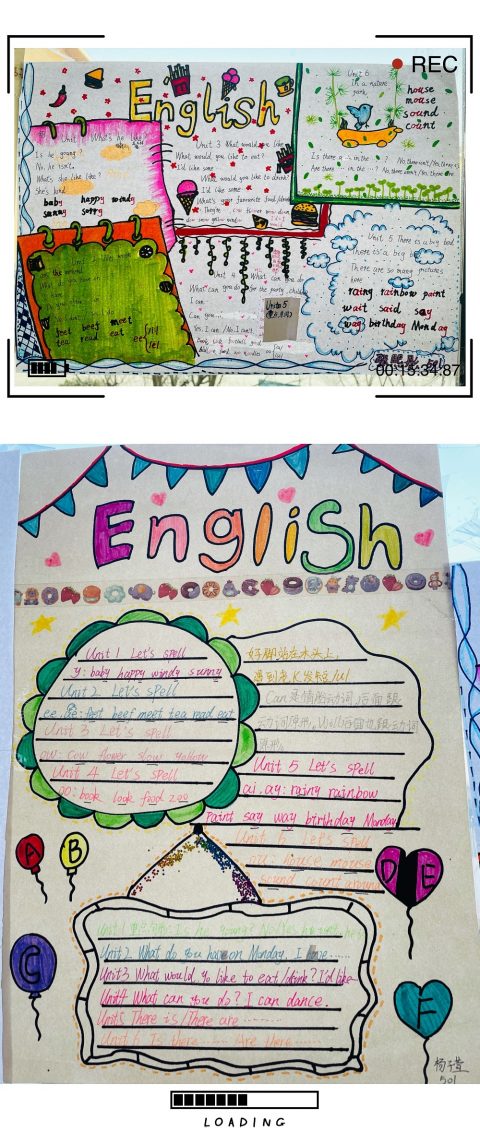 REC
English
Unit 6
In a nature
park
house
mouse
sound
count
Is there a ... in the ...?
Are there ... in the ...?
Unit 3 What would you like
What would you like to eat?
I'd like some
What would you like to drink?
I'd like some
What's your favourite food/drink?
Unit 1 What's he
Is he young?
No, he isn't.
What's she like?
She's kind
baby happy windy
sunny sorry
feet beef meet
tea read eat
Unit 4 What can you do
What can you do for the party
I can
Can you
Yes, I can/No, I can't.
Unit 5
Unit 5 There is a big bed
There is a big
There are so many pictures
here
rainy rainbow paint
wait said say
way birthday Monday
00:15:34:87
English
Unit 1 Let's spell
y: baby happy windy sunny
Unit 2 Let's spell
ee.ea: feet beef meet tea read eat
Unit 3 Let's spell
ow: cow flower slow yellow
Unit 4 Let's spell
oo: book look food zoo
好脚站在木头上,
遇到老K发短/u/
Can是情态动词,后面跟
动词原形,
动词
原形。
Unit 5 Let's spell
ai.ay: rainy rainbow
paint say way birthday Monday
Unit 6 Let's spell
ou: house mouse
sound count around
A
B
C
D E
F
Unit 1
Is he young? No,
Unit2 What do you have on Monday. I have ......
Unit3 What would yo like to eat/drink? I'd like
Unit4 What can you do? I can dance.
Unit5 There is/There are ........
Unit 6 Is there ... Are there ......
501
LOADING